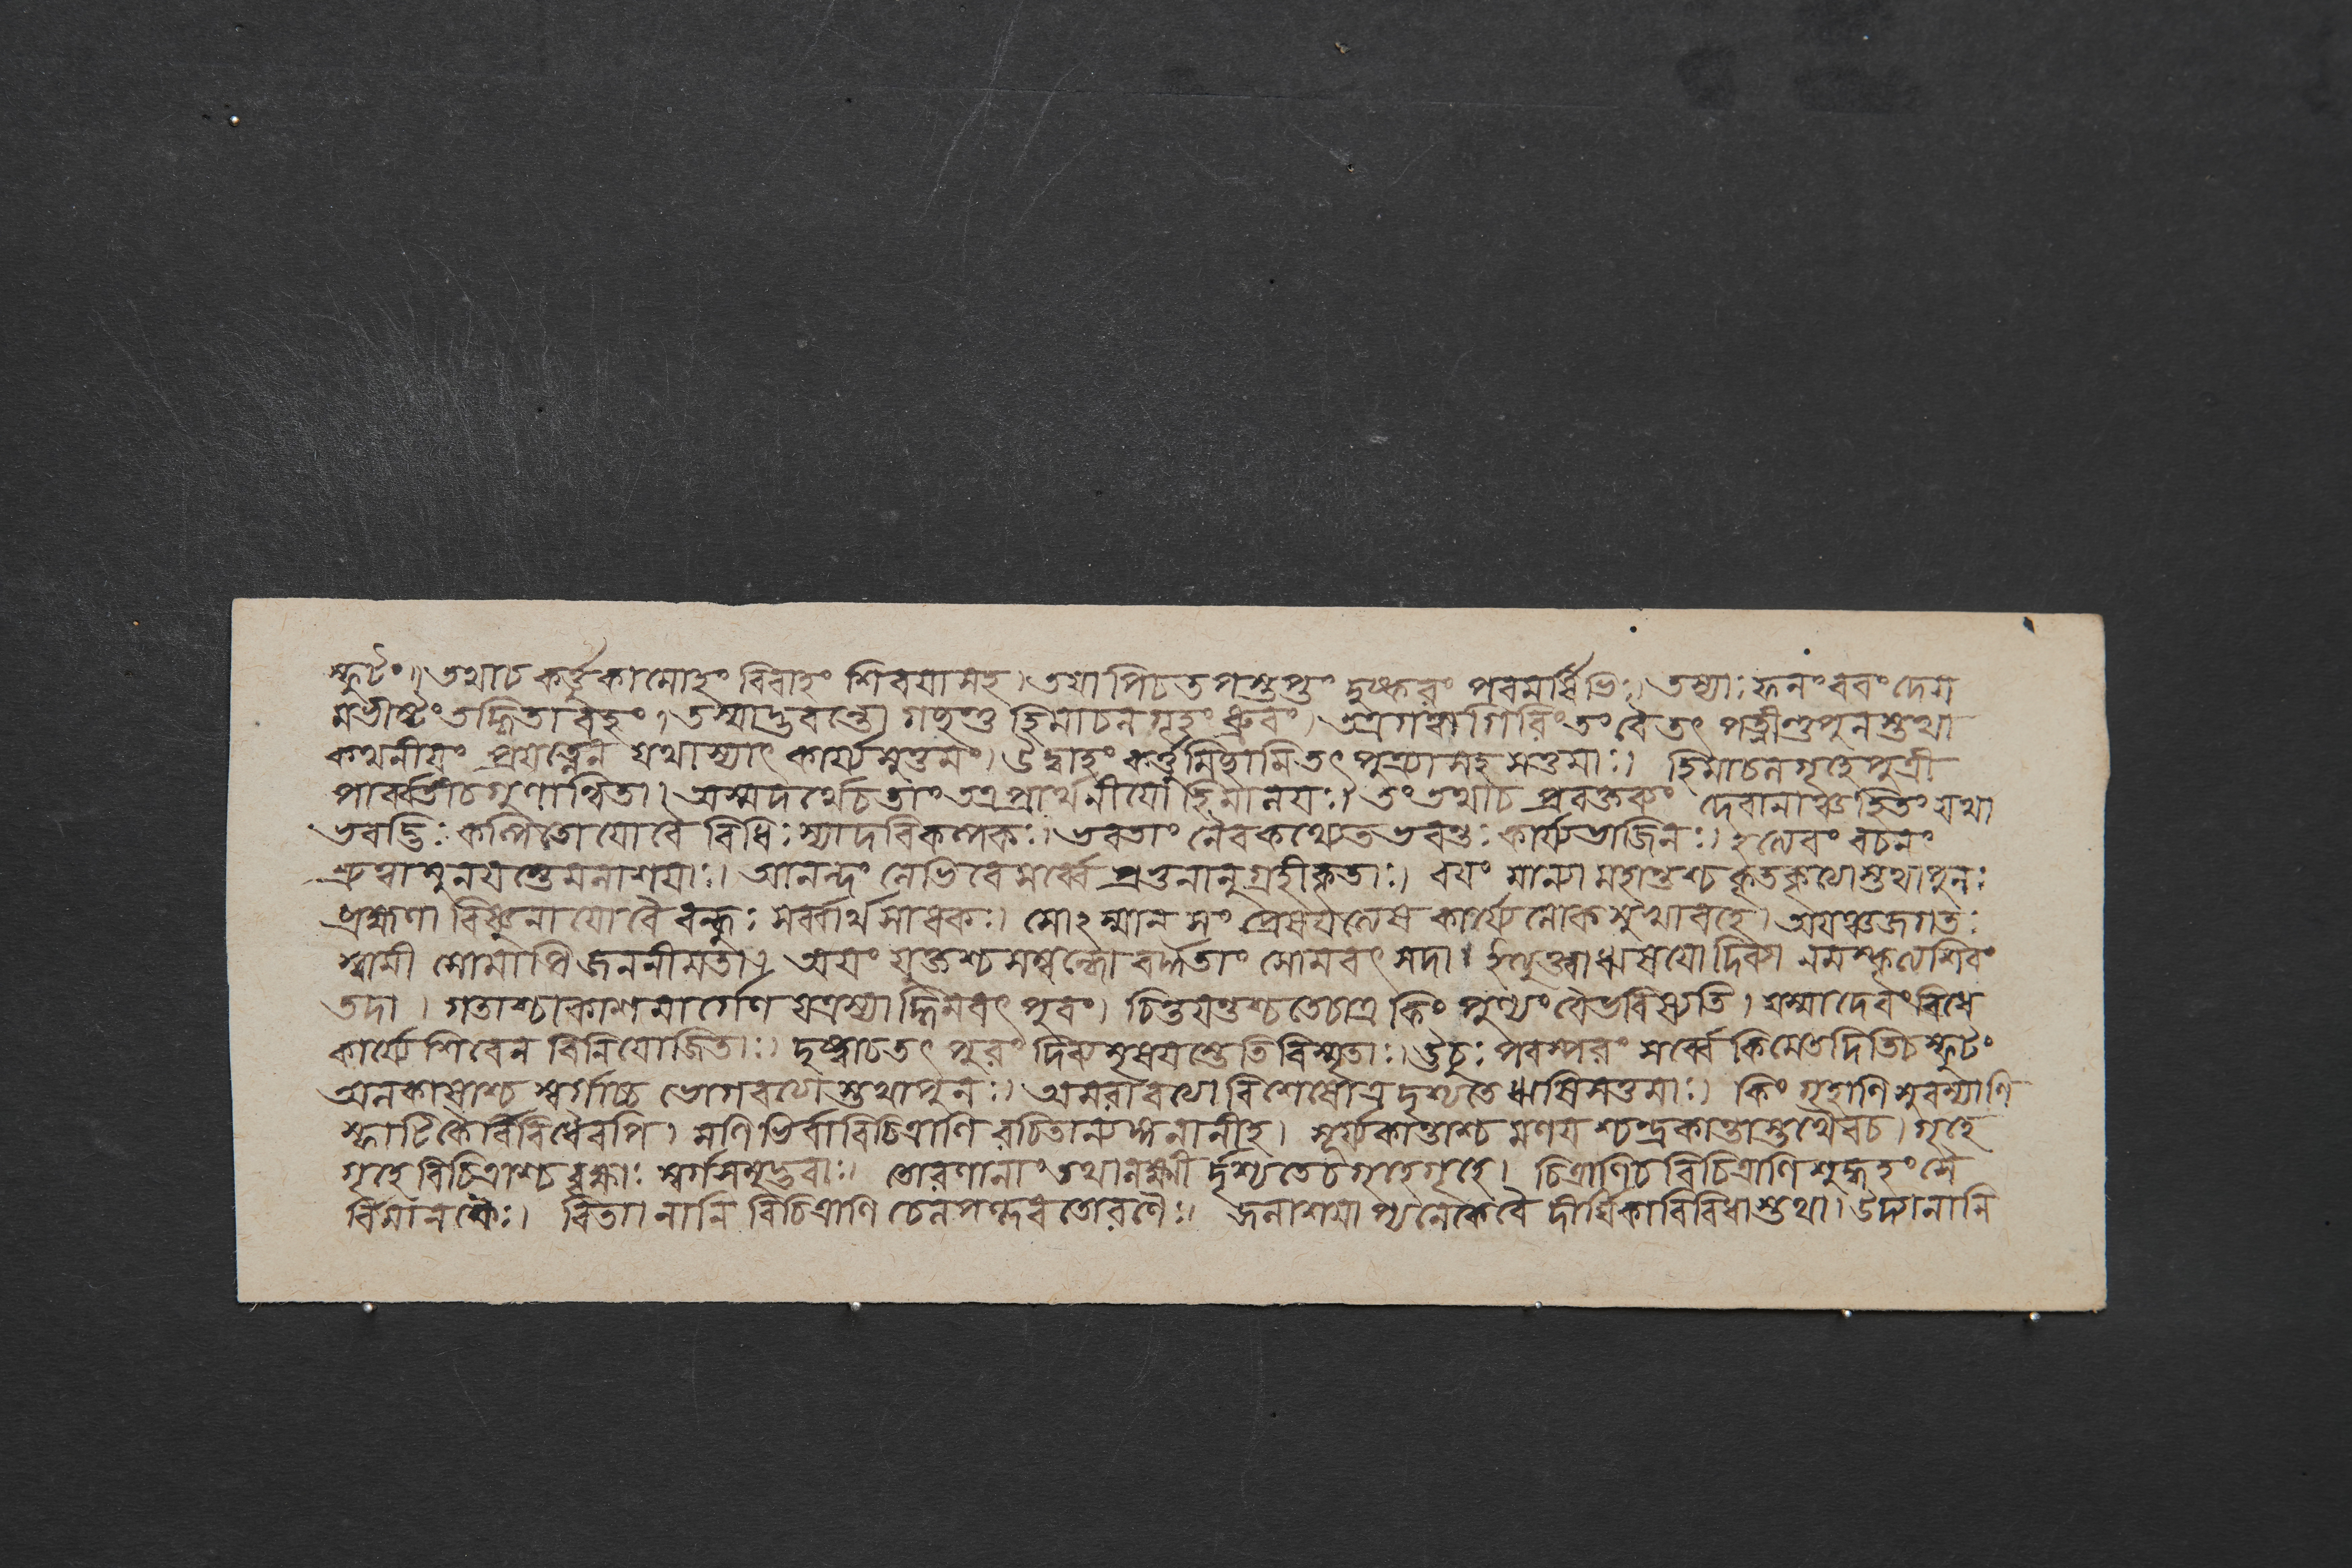 স্ফুটং॥ তথাচ কর্ত্তুকামোহং বিবাহং শিবয়াসহ। তয়াপিচতপস্তপ্তং দুষ্করং পরমর্ষিভিঃ। তস্যাঃ ফলং বরং দেয়
মভীষ্টং তদ্ধিতাবহং। তস্মাদ্ভবন্তো গচ্ছন্তু হিমাচলগৃহং ধ্রুবং। তত্রগত্বাগিরিং তং বৈ তৎ পত্নীঞ্চপুনস্তথা
কথনীয়ং প্রযত্নেন যথাস্যাৎ কার্য্যমুত্তমং। উদ্বাহং কর্ত্তুমিচ্ছামি তৎ পুত্র্যাসহ সত্তমাঃ। হিমাচলগৃহে পুত্রী
পার্ব্বতীচ গুণান্বিতা। অস্মদর্থেচ তাং তত্র প্রার্থনীয়ো হিমালয়ঃ। তং তথাচ প্রবক্তব্যং দেবানাঞ্চহিতং যথা
ভবদ্ভিঃ কল্পিতো যো বৈ বিধিঃ স্যাদবিকল্পকঃ। ভবতাং নৈবকথ্যেত ভবন্তঃ কার্য্যভাজিনঃ। ইত্যেবং বচনং
শ্রুত্বা মুনয়স্তেমলাশয়াঃ। আনন্দং লেভিরে সর্ব্বে প্রভুনানুগ্রহীকৃতাঃ। বয়ং মান্যা মহান্তশ্চ কৃতকৃত্যাস্তথাপুনঃ
ব্রহ্মণা বিষ্ণুনা যো বৈ বন্দ্যঃ সর্ব্বার্থসাধকঃ। সোঽস্মান সং প্রেষয়ত্যেষ কার্য্যে লোকসুখাবহে। অয়ঞ্চজগতঃ
স্বামী সোমাপি জননীমতা। অয়ং যুক্তশ্চ সম্বন্ধো বর্দ্ধতাং সোমবৎ সদা। ইত্যুক্ত্বা ঋষয়ো দিব্যা নমস্কৃত্যশিবং
তদা। গতাশ্চাকাশমার্গেণ যত্রস্যাদ্ধিমবৎ পুরং। চিন্তয়ন্তশ্চ তেচাত্র কিং পুণ্যং বৈভবিষ্যতি। যস্মাদেবং বিধে
কার্য্যে শিবেন বিনিযোজিতাঃ। দৃষ্ট্বাচ তৎ পুরং দিব্যমৃষয়স্তেতি বিস্মৃতাঃ। ঊচুঃ পরস্পরং সর্ব্বে কিমেতদিতিচস্ফুটং
অলকায়াশ্চ স্বর্গাচ্চ ভোগবত্যাস্তথাপুনঃ। অমরাবত্যা বিশেষোত্র দৃশ্যতে ঋষিসত্তমাঃ। কিং গৃহাণি সুরম্যাণি
স্ফাটিকৈর্বিবিধৈরপি। মণিভির্বা বিচিত্রাণি রচিতান্যঙ্গনানীহ। সূর্য্যকান্তাশ্চ মণয়শ্চন্দ্রকান্তাস্তথৈবচ। গৃহে
গৃহে বিচিত্রাশ্চ বৃক্ষাঃ স্বর্গসমুদ্ভবাঃ। তোরণানাং তথালক্ষ্মী র্দৃশ্যতেচ গৃহেগৃহে। চিত্রাণিচ বিচিত্রাণি শুকহং সৈ
র্বিমানকৈঃ। বিতানানি বিচিত্রাণি চেলপন্দবতোরণৈঃ। জলাশয়ান্যনেকবৈ দীর্ঘিকাবিবিধাস্তথা। উদ্যানানি